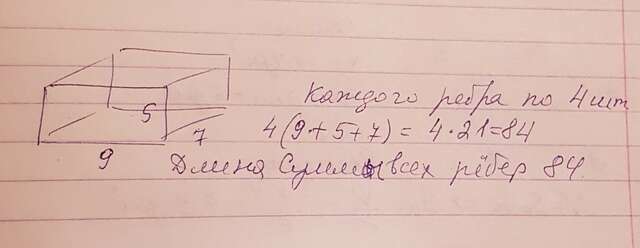 5
7
9
Каждого ребра по 4 шт
4(9+5+7) = 4·21=84
Длина Суммы всех рёбер 84.